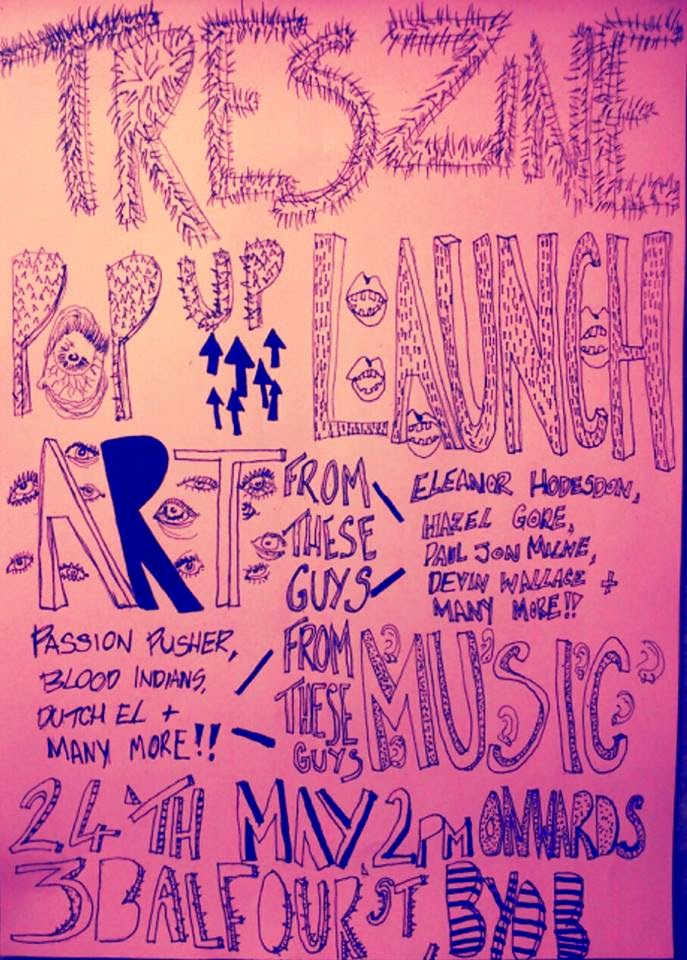 TRESZINE
POP UP LAUNCH
ART FROM THESE GUYS
ELEANOR HODESDON,
HAZEL GORE,
PAUL JON MILNE,
DEVIN WALLACE +
MANY MORE!!
PASSION PUSHER,
BLOOD INDIANS,
DUTCH EL +
MANY MORE!!
FROM THESE GUYS MUSIC
24TH MAY 2PM ONWARDS
3 BALFOUR ST, BYOB